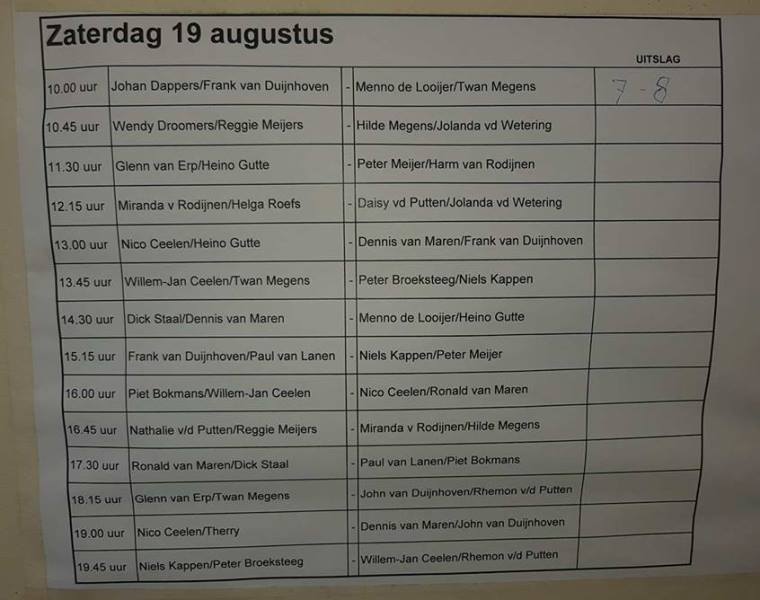 Zaterdag 19 augustus
UITSLAG
10.00 uur Johan Dappers/Frank van Duijnhoven - Menno de Looijer/Twan Megens 7 - 8
10.45 uur Wendy Droomers/Reggie Meijers - Hilde Megens/Jolanda vd Wetering
11.30 uur Glenn van Erp/Heino Gutte - Peter Meijer/Harm van Rodijnen
12.15 uur Miranda v Rodijnen/Helga Roefs - Daisy vd Putten/Jolanda vd Wetering
13.00 uur Nico Ceelen/Heino Gutte - Dennis van Maren/Frank van Duijnhoven
13.45 uur Willem-Jan Ceelen/Twan Megens - Peter Broeksteeg/Niels Kappen
14.30 uur Dick Staal/Dennis van Maren - Menno de Looijer/Heino Gutte
15.15 uur Frank van Duijnhoven/Paul van Lanen - Niels Kappen/Peter Meijer
16.00 uur Piet Bokmans/Willem-Jan Ceelen - Nico Ceelen/Ronald van Maren
16.45 uur Nathalie v/d Putten/Reggie Meijers - Miranda v Rodijnen/Hilde Megens
17.30 uur Ronald van Maren/Dick Staal - Paul van Lanen/Piet Bokmans
18.15 uur Glenn van Erp/Twan Megens - John van Duijnhoven/Rhemon v/d Putten
19.00 uur Nico Ceelen/Therry - Dennis van Maren/John van Duijnhoven
19.45 uur Niels Kappen/Peter Broeksteeg - Willem-Jan Ceelen/Rhemon v/d Putten